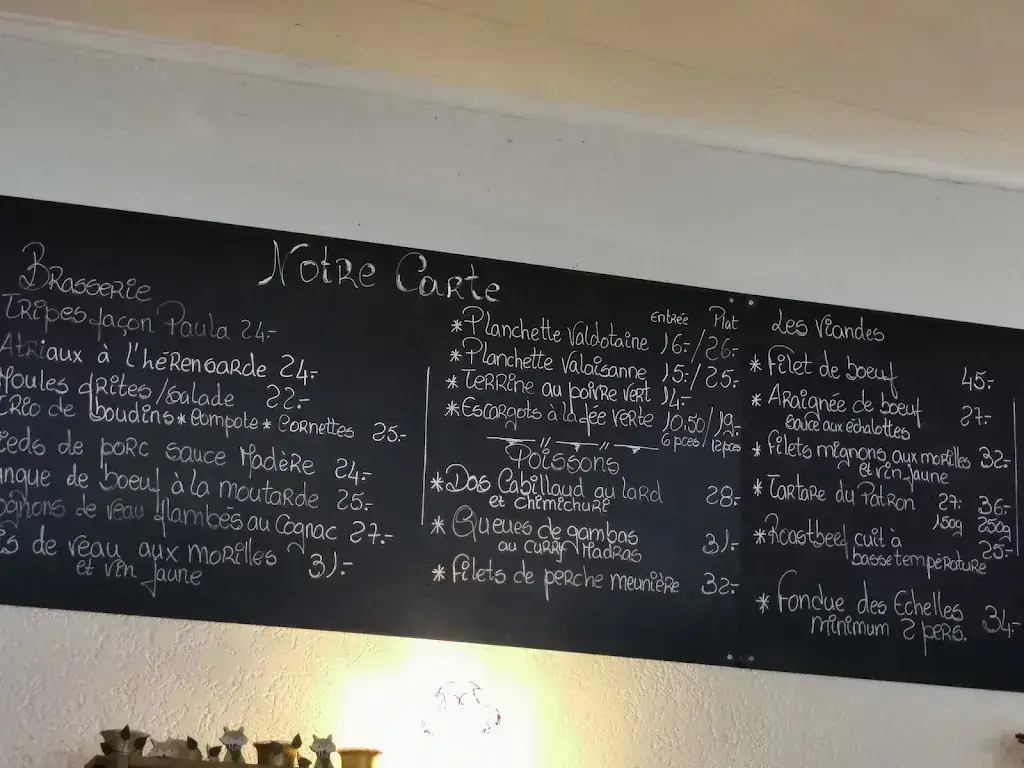 Notre Carte
Brasserie
Tripes façon Paula 24.-
Atriaux à l'hérensarde 24.-
Moules frites/salade 22.-
Trio de boudins * compote * cornettes 25.-
ieds de porc sauce Madère 24.-
angue de boeuf à la moutarde 25.-
ognons de veau flambés au Cognac 27.-
is de veau aux morilles 31.-
et vin jaune
Entrée Plat
* Planchette Valdotaine 16.-/26.-
* Planchette Valaisanne 15.-/25.-
* Terrine au poivre vert 14.-
* Escargots à la fée verte 10.50/19.-
6 pces/12 pces
Poissons
* Dos Cabillaud au lard 28.-
et chimichuri
* Queues de gambas 31.-
au curry Madras
* Filets de perche meunière 32.-
Les Viandes
* Filet de boeuf 45.-
* Araignée de boeuf 27.-
sauce aux échalottes
* Filets mignons aux morilles 32.-
et vin jaune
* Tartare du Patron 27.- 36.-
150g 250g
* Roastbeef cuit à
basse température 25.-
* Fondue des Echelles 34.-
minimum 2 pers.